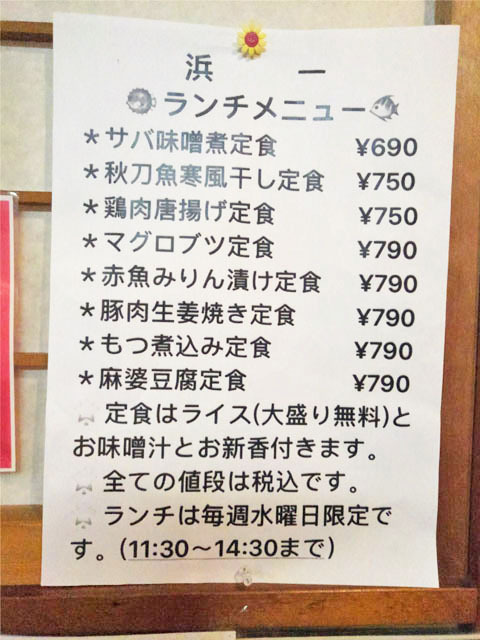 浜 一
ランチメニュー
*サバ味噌煮定食 ¥690
*秋刀魚寒風干し定食 ¥750
*鶏肉唐揚げ定食 ¥750
*マグロブツ定食 ¥790
*赤魚みりん漬け定食 ¥790
*豚肉生姜焼き定食 ¥790
*もつ煮込み定食 ¥790
*麻婆豆腐定食 ¥790
定食はライス(大盛り無料)と
お味噌汁とお新香付きます。
全ての値段は税込です。
ランチは毎週水曜日限定で
す。(11:30〜14:30まで)